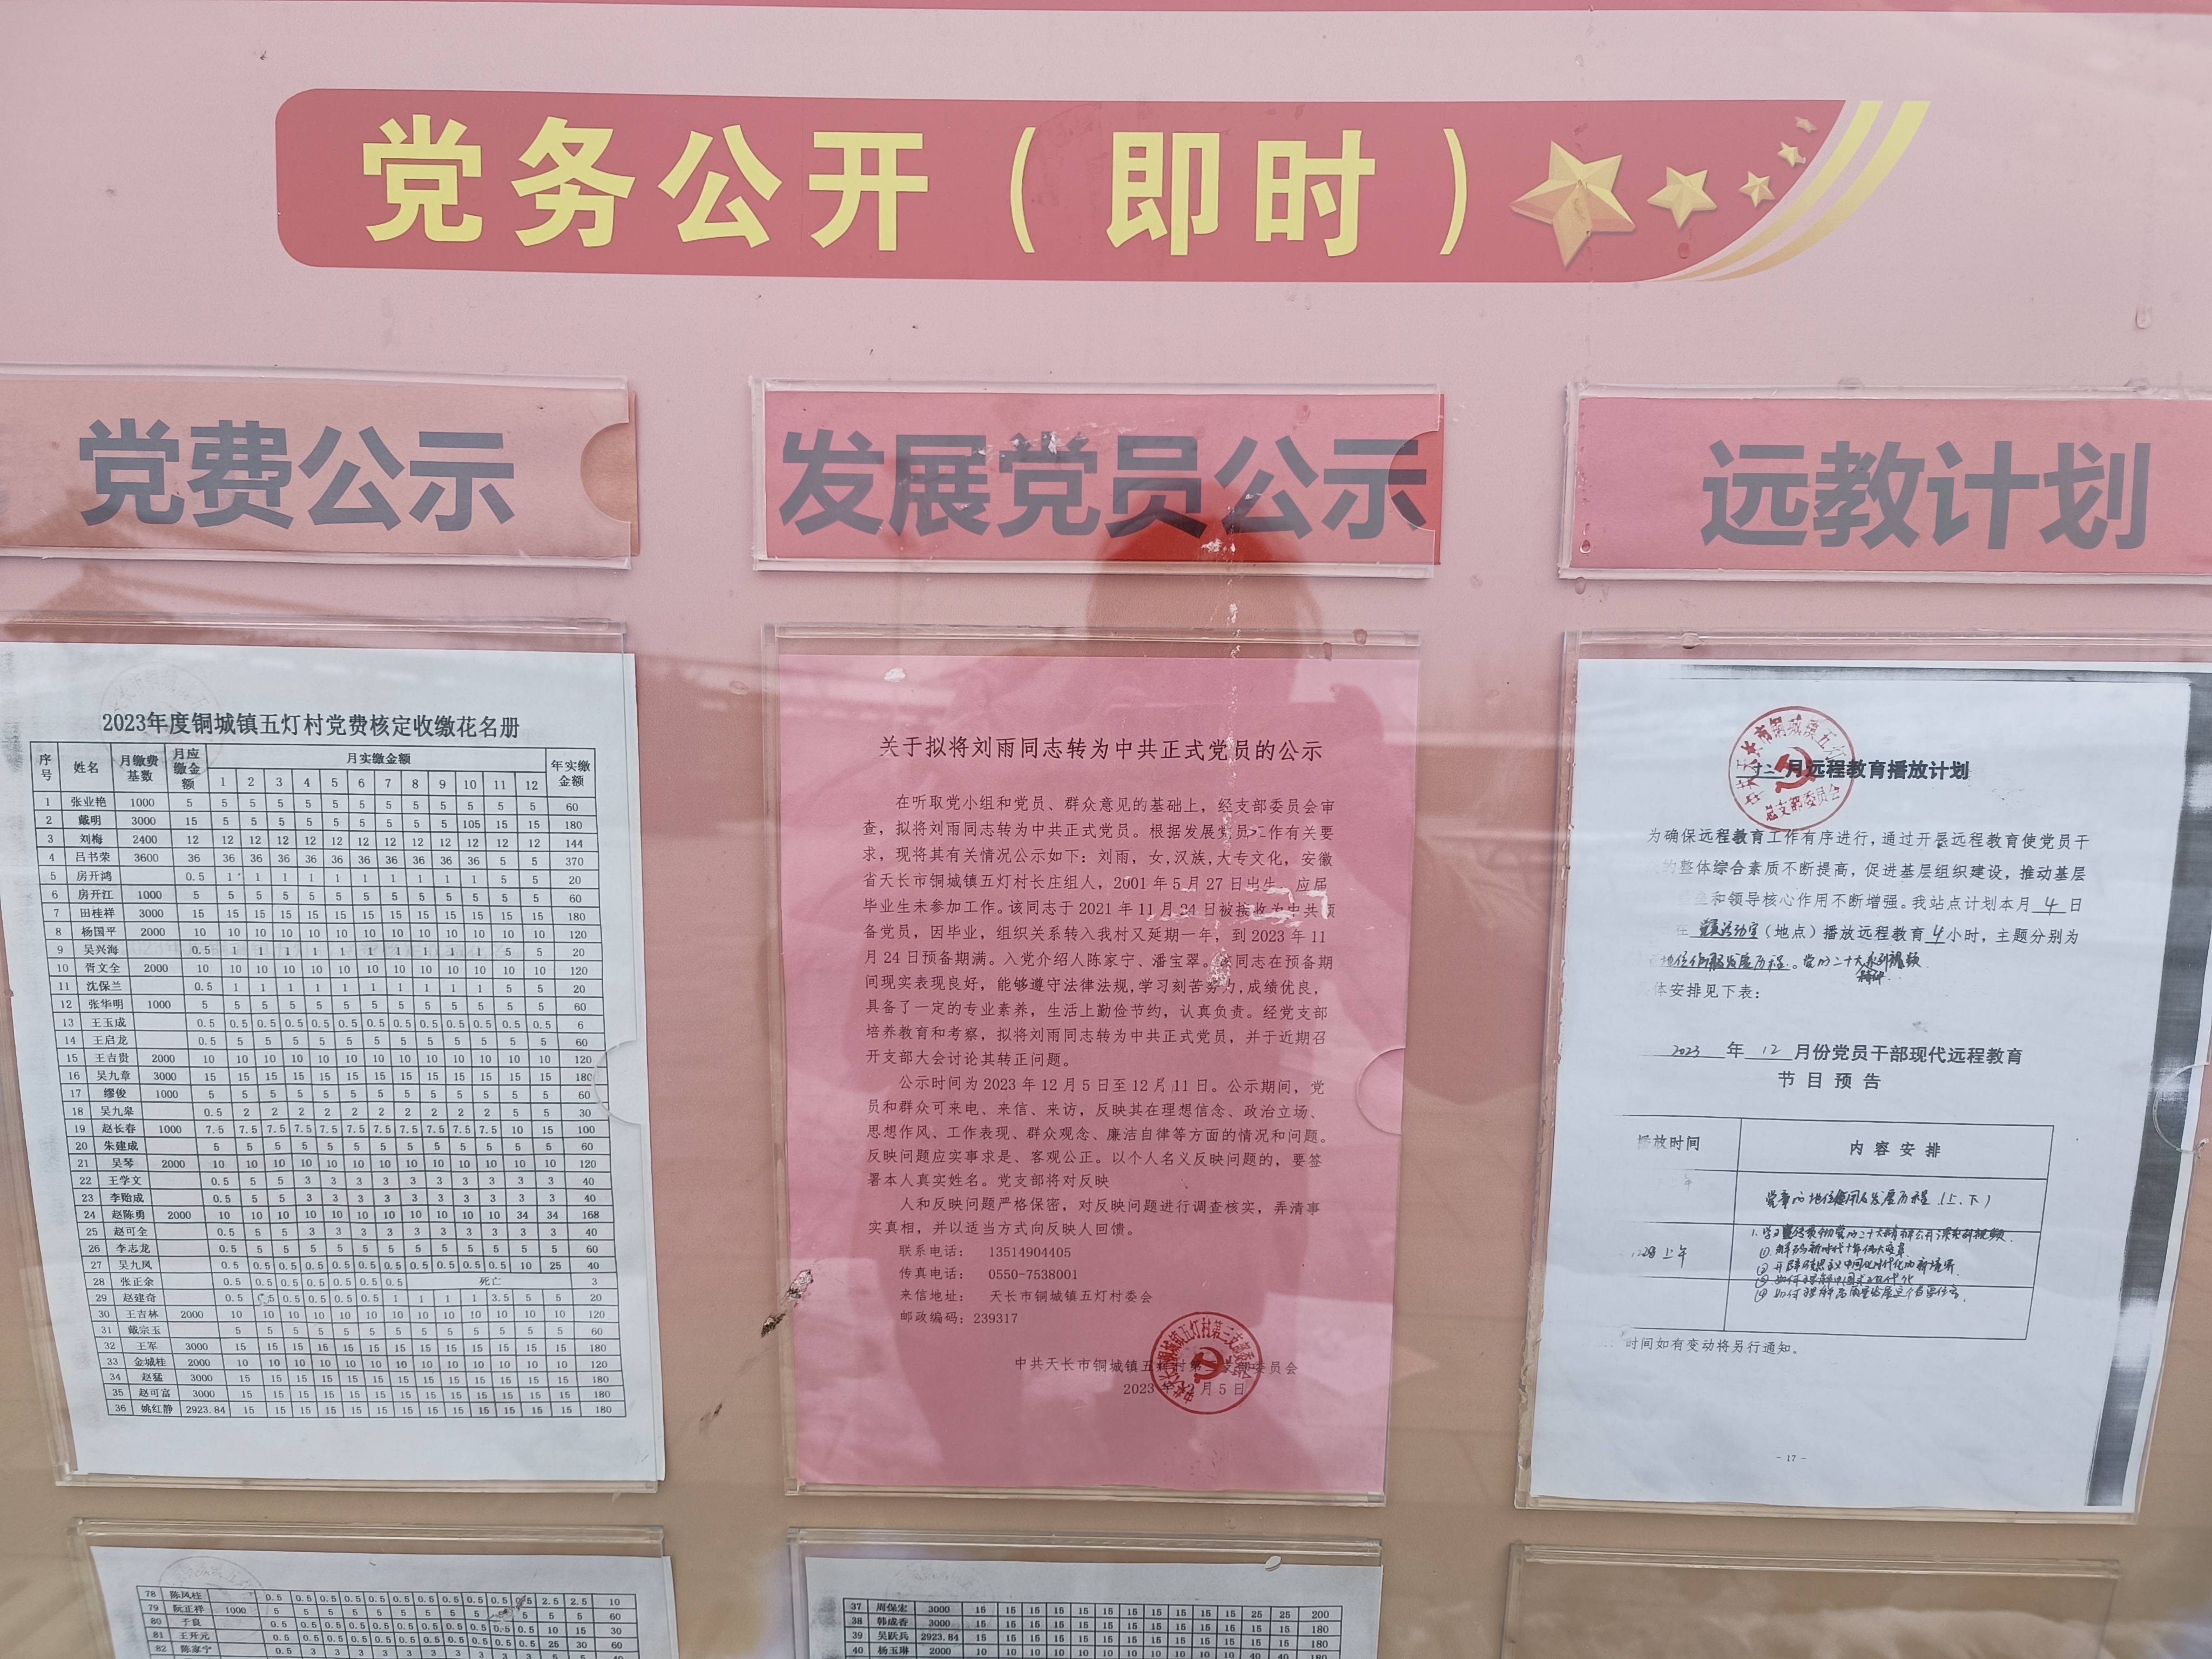 党务公开（即时）
党费公示
发展党员公示
远教计划
2023年度铜城镇五灯村党费核定收缴花名册
序号 姓名 月缴费基数 月应缴金额 月实缴金额 年实缴金额
1 2 3 4 5 6 7 8 9 10 11 12
1 张业艳 1000 5 5 5 5 5 5 5 5 5 5 5 5 5 60
2 戴明 3000 15 5 5 5 5 5 5 5 5 5 105 15 15 180
3 刘梅 2400 12 12 12 12 12 12 12 12 12 12 12 12 12 144
4 吕书荣 3600 36 36 36 36 36 36 36 36 36 36 36 5 5 370
5 房开鸿 0.5 1 1 1 1 1 1 1 1 1 1 5 5 20
6 房开江 1000 5 5 5 5 5 5 5 5 5 5 5 5 5 60
7 田桂祥 3000 15 15 15 15 15 15 15 15 15 15 15 15 15 180
8 杨国平 2000 10 10 10 10 10 10 10 10 10 10 10 10 10 120
9 吴兴海 0.5 1 1 1 1 1 1 1 1 1 1 5 5 20
10 胥文全 2000 10 10 10 10 10 10 10 10 10 10 10 10 10 120
11 沈保兰 0.5 1 1 1 1 1 1 1 1 1 1 5 5 20
12 张华明 1000 5 5 5 5 5 5 5 5 5 5 5 5 5 60
13 王玉成 0.5 0.5 0.5 0.5 0.5 0.5 0.5 0.5 0.5 0.5 0.5 0.5 0.5 6
14 王启龙 0.5 5 5 5 5 5 5 5 5 5 5 5 5 60
15 王吉贵 2000 10 10 10 10 10 10 10 10 10 10 10 10 10 120
16 吴九章 3000 15 15 15 15 15 15 15 15 15 15 15 15 15 180
17 缪俊 1000 5 5 5 5 5 5 5 5 5 5 5 5 5 60
18 吴九皋 0.5 2 2 2 2 2 2 2 2 2 2 5 5 30
19 赵长春 1000 7.5 7.5 7.5 7.5 7.5 7.5 7.5 7.5 7.5 7.5 7.5 10 15 100
20 朱建成 5 5 5 5 5 5 5 5 5 5 5 5 5 60
21 吴琴 2000 10 10 10 10 10 10 10 10 10 10 10 10 10 120
22 王学文 0.5 5 5 3 3 3 3 3 3 3 3 3 3 40
23 李贻成 0.5 5 5 3 3 3 3 3 3 3 3 3 3 40
24 赵陈勇 2000 10 10 10 10 10 10 10 10 10 10 10 34 34 168
25 赵可全 0.5 5 5 3 3 3 3 3 3 3 3 3 3 40
26 李志龙 0.5 5 5 5 5 5 5 5 5 5 5 5 5 60
27 吴九凤 0.5 0.5 0.5 0.5 0.5 0.5 0.5 0.5 0.5 0.5 0.5 10 25 40
28 张正余 0.5 0.5 0.5 0.5 0.5 0.5 0.5 死亡 3
29 赵建奇 0.5 0.5 0.5 0.5 0.5 0.5 0.5 1 1 1 1 3.5 5 5 20
30 王吉林 2000 10 10 10 10 10 10 10 10 10 10 10 10 10 120
31 戴宗玉 5 5 5 5 5 5 5 5 5 5 5 5 5 60
32 王军 3000 15 15 15 15 15 15 15 15 15 15 15 15 15 180
33 金城桂 2000 10 10 10 10 10 10 10 10 10 10 10 10 10 120
34 赵猛 3000 15 15 15 15 15 15 15 15 15 15 15 15 15 180
35 赵可富 3000 15 15 15 15 15 15 15 15 15 15 15 15 15 180
36 姚红静 2923.84 15 15 15 15 15 15 15 15 15 15 15 15 15 180
关于拟将刘雨同志转为中共正式党员的公示
在听取党小组和党员、群众意见的基础上，经支部委员会审
查，拟将刘雨同志转为中共正式党员。根据发展党员工作有关要
求，现将其有关情况公示如下：刘雨，女,汉族,大专文化，安徽
省天长市铜城镇五灯村长庄组人，2001年5月27日出生，应届
毕业生未参加工作。该同志于2021年11月24日被接收为中共预
备党员，因毕业，组织关系转入我村又延期一年，到2023年11
月24日预备期满。入党介绍人陈家宁、潘宝翠。该同志在预备期
间现实表现良好，能够遵守法律法规,学习刻苦努力,成绩优良，
具备了一定的专业素养，生活上勤俭节约，认真负责。经党支部
培养教育和考察，拟将刘雨同志转为中共正式党员，并于近期召
开支部大会讨论其转正问题。
公示时间为2023年12月5日至12月11日。公示期间，党
员和群众可来电、来信、来访，反映其在理想信念、政治立场、
思想作风、工作表现、群众观念、廉洁自律等方面的情况和问题。
反映问题应实事求是、客观公正。以个人名义反映问题的，要签
署本人真实姓名。党支部将对反映
人和反映问题严格保密，对反映问题进行调查核实，弄清事
实真相，并以适当方式向反映人回馈。
联系电话： 13514904405
传真电话： 0550-7538001
来信地址： 天长市铜城镇五灯村委会
邮政编码：239317
中共天长市铜城镇五灯村第三支部委员会
2023年12月5日
十二月远程教育播放计划
总支部委员会
为确保远程教育工作有序进行，通过开展远程教育使党员干
的整体综合素质不断提高，促进基层组织建设，推动基层
垒和领导核心作用不断增强。我站点计划本月4日
在 党员活动室（地点）播放远程教育4小时，主题分别为
地位作用及发展历程。党的二十大系列视频
体安排见下表：
2023 年 12 月份党员干部现代远程教育
节目预告
播放时间 内容安排
党章的地位作用及发展历程（上、下）
上午
时间如有变动将另行通知。
- 17 -
78 陈凤桂 0.5 0.5 0.5 0.5 0.5 0.5 0.5 0.5 0.5 0.5 0.5 2.5 2.5 10
79 阮正祥 1000 5 5 5 5 5 5 5 5 5 5 5 5 60
80 于良 0.5 0.5 0.5 0.5 0.5 0.5 0.5 0.5 0.5 0.5 10 15 30
81 王开元 0.5 0.5 0.5 0.5 0.5 0.5 0.5 0.5 0.5 0.5 25 30 60
82 陈家宁 0.5 3 3 3 3
37 周保宏 3000 15 15 15 15 15 15 15 15 15 15 15 25 25 200
38 韩成香 3000 15 15 15 15 15 15 15 15 15 15 15 15 15 180
39 吴跃兵 2923.84 15 15 15 15 15 15 15 15 15 15 15 15 15 180
40 杨玉琳 2000 10 10 10 10 10 10 10 10 10 10 10 40 40 180